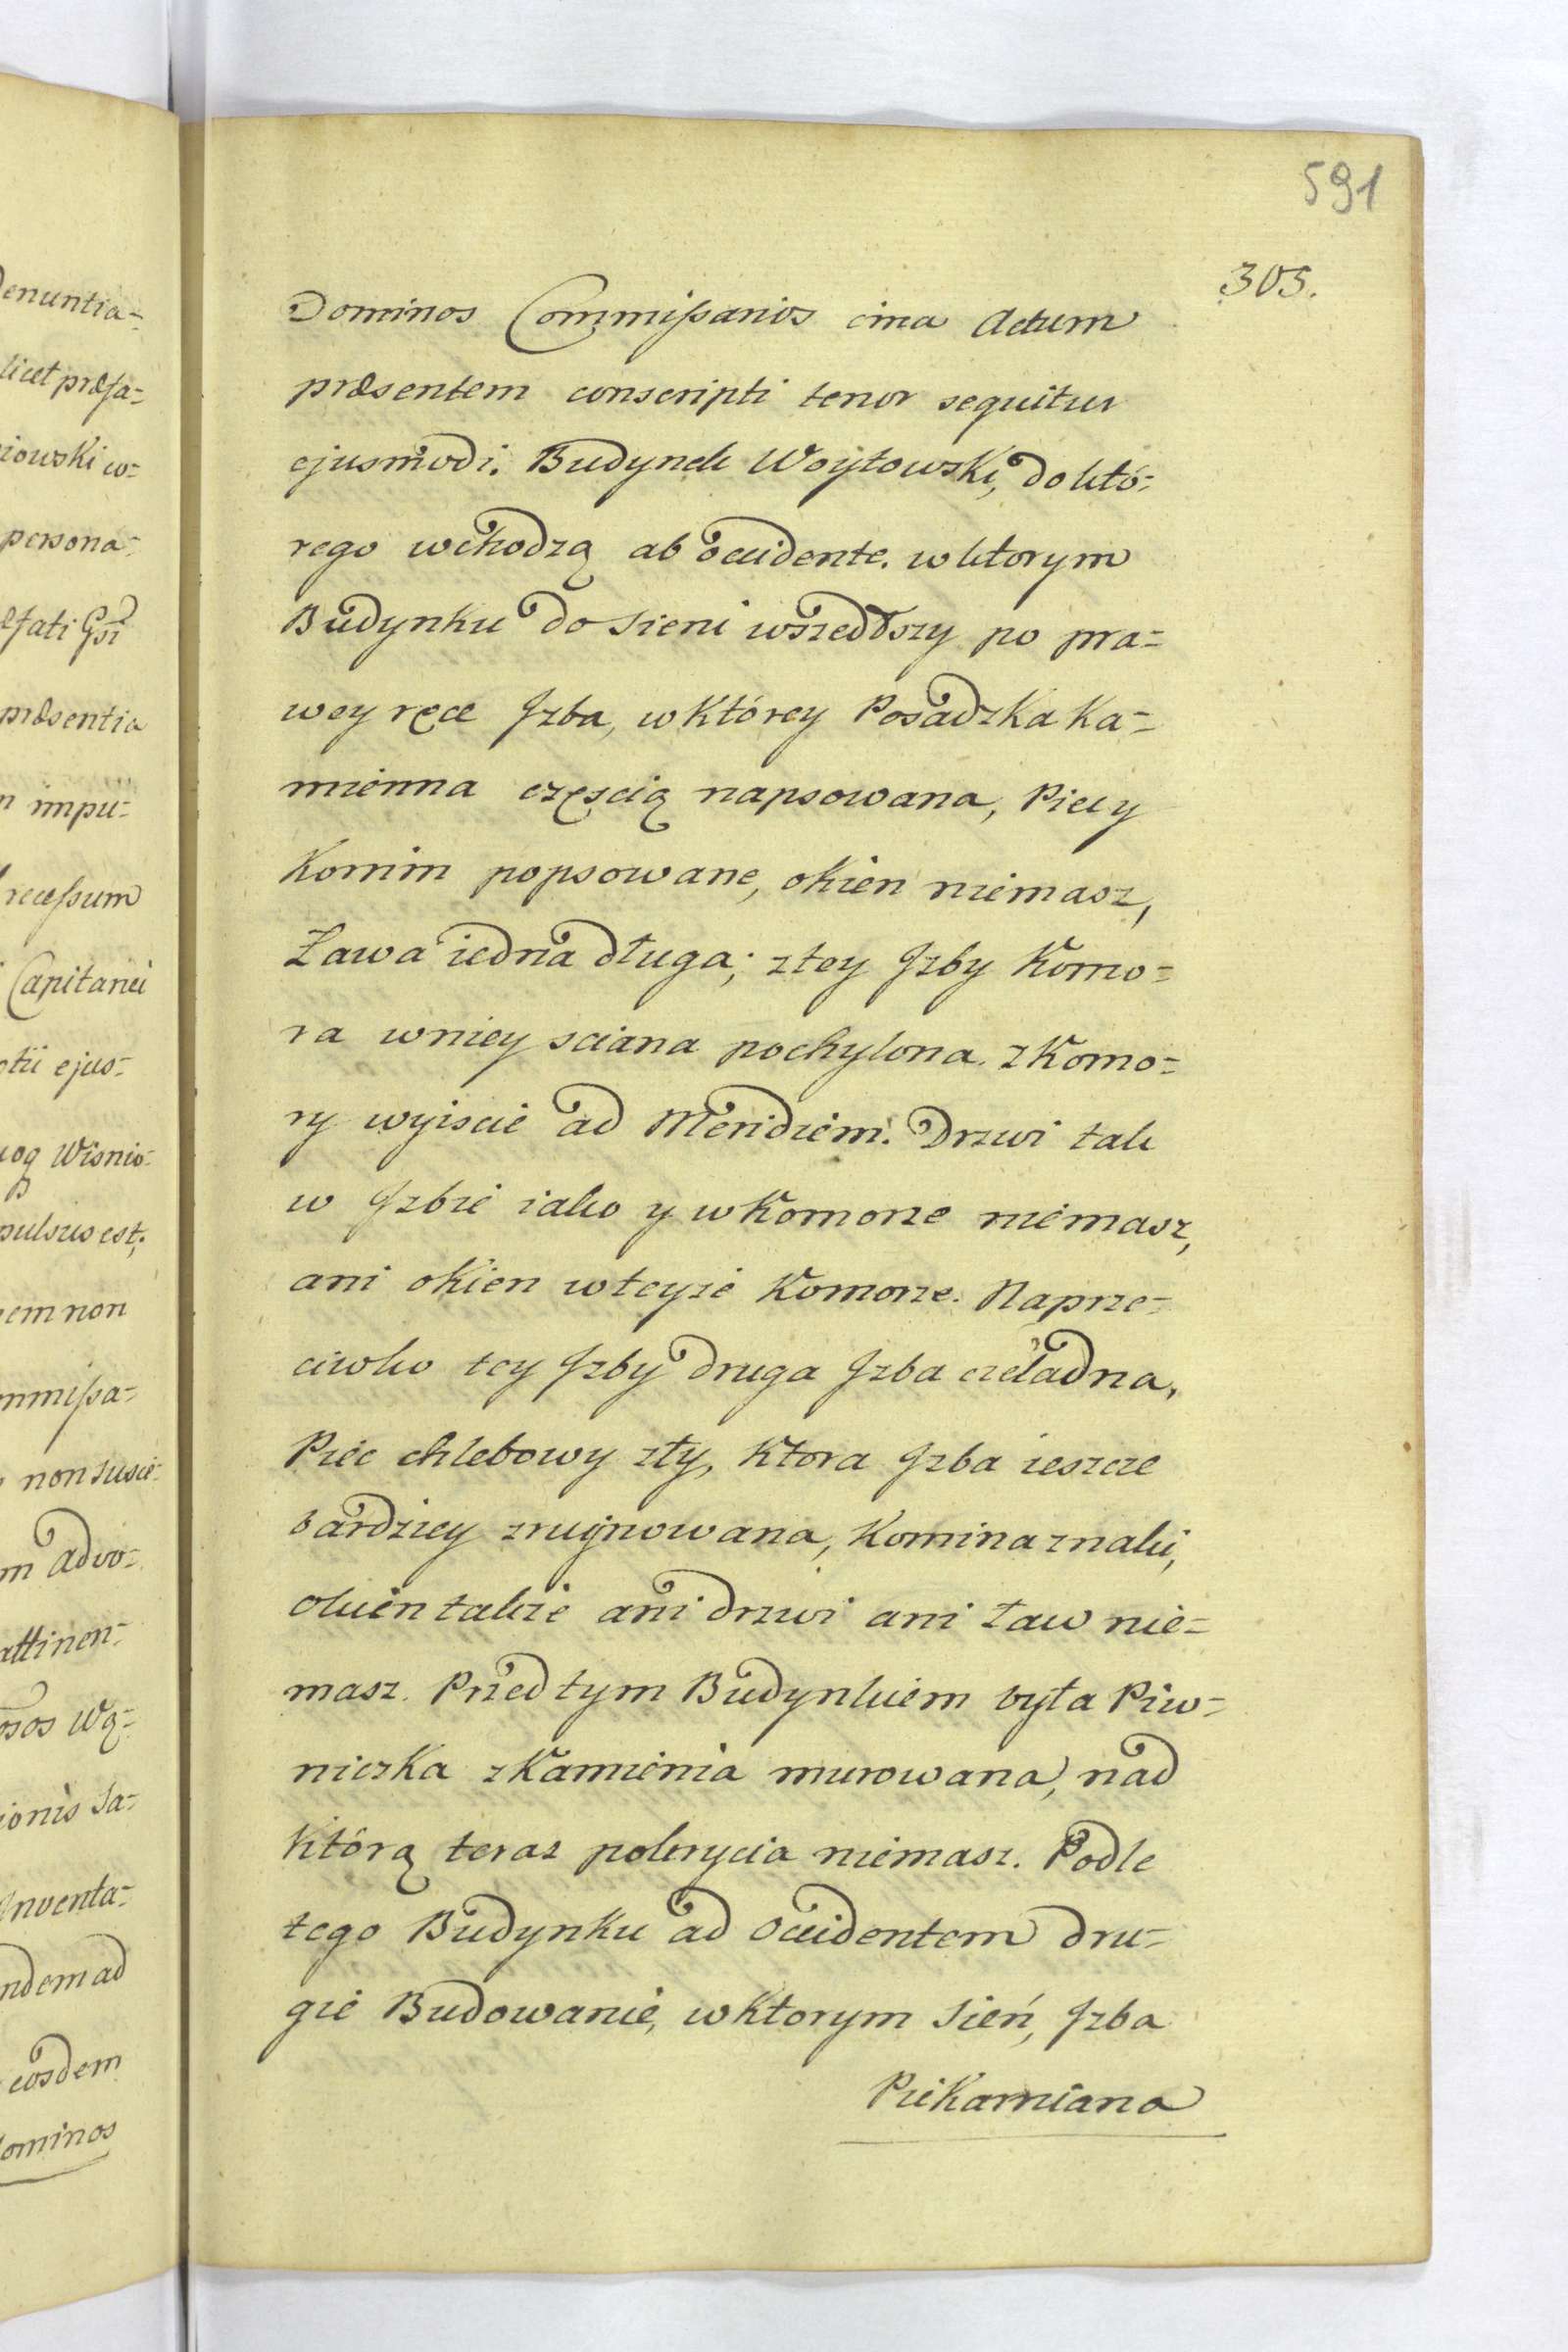 591
305.
Dominos Commissarios circa Actum
præsentem conscripti tenor sequitur
ejusmodi. Budynek Woytowski, do któ=
rego wchodzą ab occidente. w ktorym
Budynku do sieni wszedłszy po pra=
wey ręce Jzba, w którey Posadzka ka=
mienna częscią napsowana, Piec y
Komin popsowane, okien niemasz,
Ława iedna długa; z tey Jzby Komo=
ra w niey sciana pochylona. z Komo=
ry wyiscie ad Meridiem. Drzwi tak
w Jzbie iako y w Komorze niemasz,
ani okien w teyże Komorze. Naprze=
ciwko tey Jzby druga Jzba czeladna,
Piec chlebowy zły, ktora Jzba ieszcze
bardziey zruynowana, Komina znaki,
okien także ani drzwi ani ław nie=
masz. Przed tym Budynkiem była Piw=
niczka z Kamienia murowana, nad
którą teraz pokrycia niemasz. Podle
tego Budynku ad Occidentem dru=
gie Budowanie, w ktorym Sień, Jzba
Piekarniana
enuntia=
licet præfa=
iowski w=
persona=
fati Gsi
præsentia
impu=
recessum
Capitanei
ejus=
Wisnio=
pulsus est,
em non
mmissa=
non susce=
m advo=
attinen=
osos Wą=
ionis Sa=
Inventa=
ndem ad
eosdem
Dominos